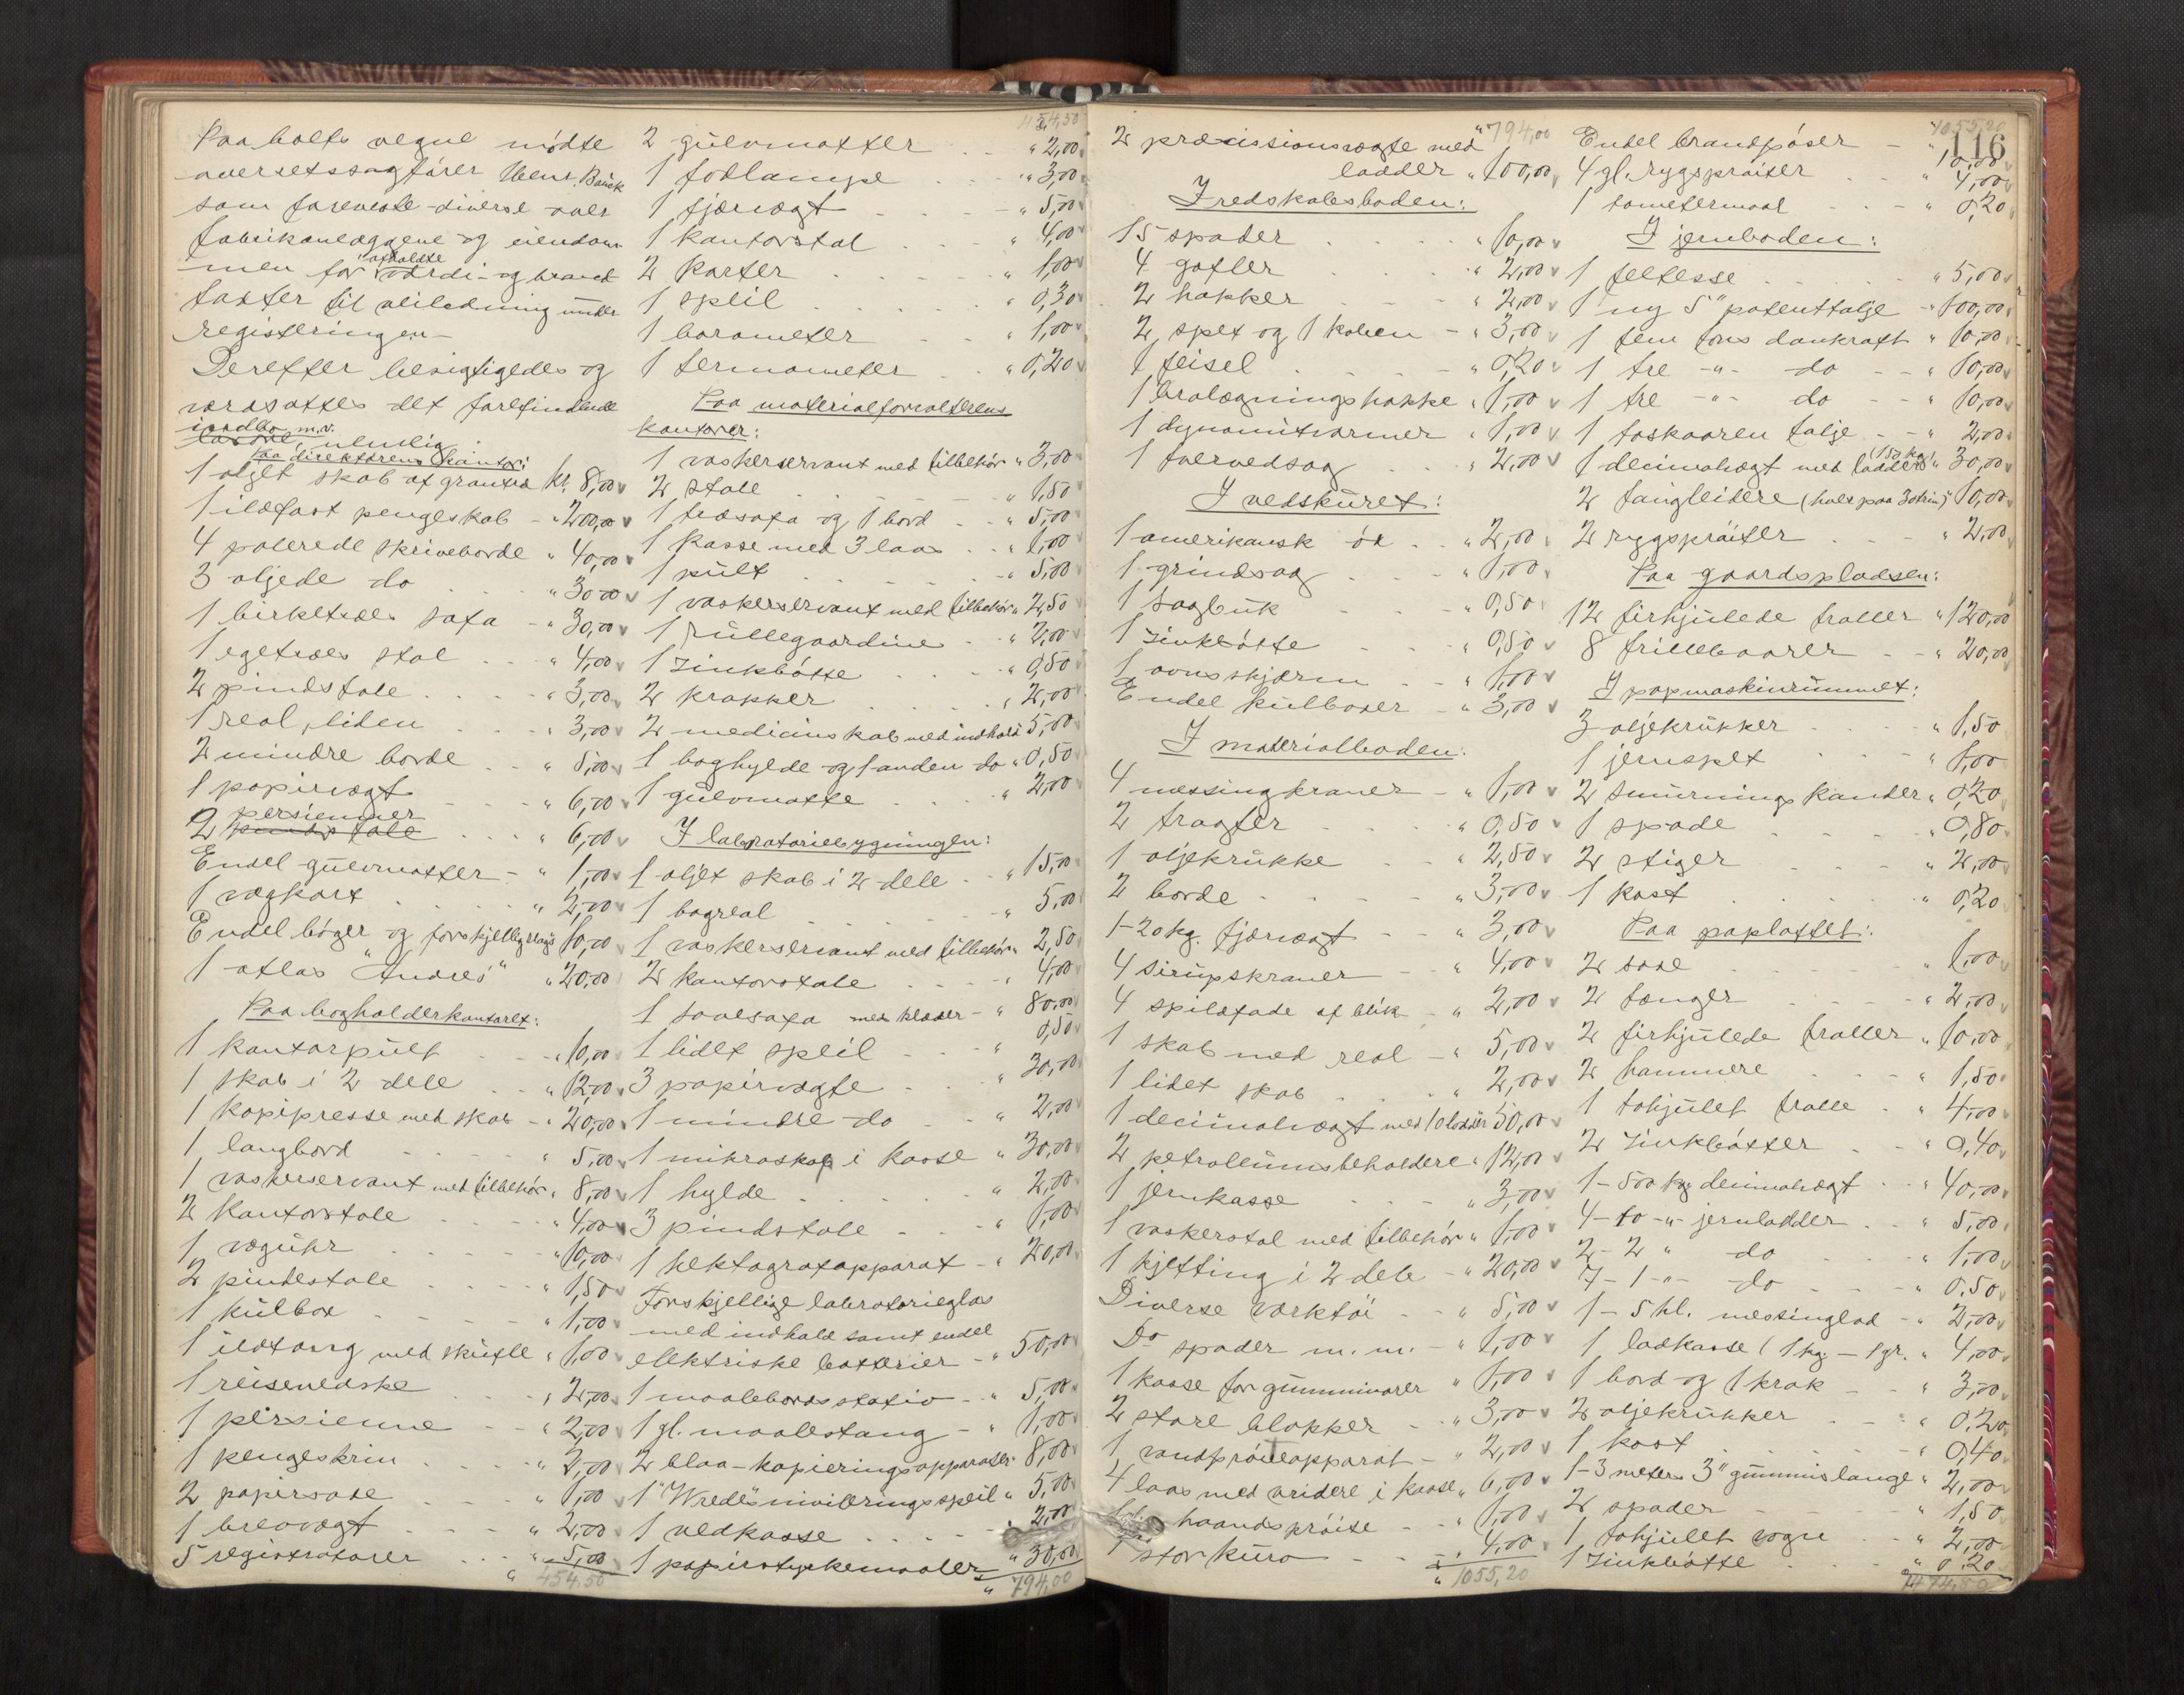 Paa bolts vegne mødte
overretssagfører
som foreviste diverse over
fabrikanlæggene og eiendom-
men før afholdte værdi- og brand-
taxter til veiledning under
registeringen.
Derefter besigtigedes og
værdsattes det forefindende
indbo m.v.
løsøre, nemlig
Paa direktørens kontor:
1 oljet skab af granved kr. 8,00
1 ildfast pengeskab - " 200,00
4 polerede skriveborde " 40,00
3 oljede do " 30,00
1 birketræs sofa " 30,00
1 egetræs stol " 4,00
2 pindstole " 3,00
1 real, liden " 3,00
2 mindre borde " 5,00
1 papirvægt " 6,00
2 persienner pindstole " 6,00
Endel gulvmatter " 1,00
1 vægkart " 2,00
Endel bøger og forskjelligt slags 10,00
1 atlas "Andreé" " 20,00
Paa bogholderkontoret:
1 kontorpult " 10,00
1 skab i 2 dele " 12,00
1 kopipresse med skab " 20,00
1 langbord " 5,00
1 vaskerservant med tilbehør " 8,00
2 kontorstole " 4,00
1 væguhr " 10,00
2 pindestole " 1,50
1 kulbox " 1,00
1 ildtang med skuffe " 1,00
1 reiseveske " 2,00
1 persienne " 2,00
1 pengeskrin " 2,00
2 papirsaxe " 1,00
1 brevvægt " 2,00
5 registratorer " 5,00
" 454.50
454,50
2 gulvmatter " 2,00
1 fodlampe " 3,00
1 fjærvægt " 5,00
1 kontorstol " 4,00
2 karter " 1,00
1 speil " 0,30
1 barometer " 1,00
1 termometer " 0,20
Paa materialforvalterens
kontorer:
1 vaskerservant med tilbehør " 3,00
2 stole " 1,50
1 træsofa og 1 bord " 5,00
1 kasse med 3 laas " 1,00
1 pult " 5,00
1 vaskerservant med tilbehør " 2,50
1 rullegardine " 2,00
1 zinkbøtte " 0,50
2 krakker " 2,00
2 medicinskab med indhold 5,00
1 boghylde og 1 anden do " 0,50
1 gulvmatte " 2,00
I laboratoriebygningen:
1 oljet skab i 2 dele " 15,00
1 bogreal " 5,00
1 vaskerservant med tilbehør " 2,50
2 kontorstole " 4,00
1 sovesofa med klæder " 80,00
1 lidet speil " 0,50
3 papirvægte " 30,00
1 mindre do " 2,00
1 mikroskop i kasse " 30,00
1 hylde " 2,00
3 pindstole " 1,00
1 hektografapparat " 20,00
Forskjellige laboratorieglas
med indhold samt endel
elektriske batterier " 50,00
1 maalebordsstativ " 5,00
1 gl. maalestang " 1,00
2 blaa-kopieringsapparater " 8,00
1 "Wredes" nivilleringsspeil " 5,00
1 vedkasse " 2,00
1 papirstykkemaaler " 30,00
" 794,00
" 794,00
2 præcissionsvægte med
lodder " 100,00
I redskabsboden:
15 spader " 10,00
4 gafler " 2,00
2 hakker " 2,00
2 spet og 1 kuben " 3,00
1 feisel " 0,20
1 brolægningshakke " 1,00
1 dynamitvarmer " 1,00
1 tvervedsag " 2,00
I vedskuret:
1 amerikansk øx " 2,00
1 grindsag " 1,00
1 sagbuk " 0,50
1 zinkbøtte " 0,50
1 ovnsskjærm " 1,00
Endel kulboxer " 3,00
I materialboden:
4 messingkraner " 1,00
2 tragter " 0,50
1 oljekrukke " 2,50
2 borde " 3,00
1-20 kg. fjærvægt " 3,00
4 sirupskraner " 4,00
4 spilafade af blik " 2,00
1 skab med real " 5,00
1 lidet skab " 2,00
1 decimalvægt med 10 lodder 50,00
2 petroleumsbeholdere " 12,00
1 jernkasse " 3,00
1 vaskerstol med tilbehør " 1,00
1 kjetting i 2 dele " 20,00
Diverse værktøi " 5,00
Do spader m.m. " 1,00
1 kasse for gummivarer " 1,00
2 store blokker " 3,00
1 vandprøveapparat " 2,00
4 laas med vridere i kasse " 6,00
haandsprøite " 1,00
1 stor kurv " 4,00
" 1055,20
" 1055,20
116
Endel brandpøser " 10,00
4 gl. rygsprøiter " 4,00
1 tometermaal " 0,20
I jernboden:
1 feltesse " 5,00
1 ny 5" patenttalje " 100,00
1 fem tons donkraft " 10,00
1 tre -"- do " 10,00
1 tre -"- do " 10,00
1 toskaaren talje " 2,00
1 decimalvægt med lodder (150 kg) " 30,00
2 fangleidere (hver paa 30 trin) 10,00
2 rygsprøiter " 2,00
Paa gaardspladsen:
12 firhjulede traller " 120,00
8 trillebaarer " 20,00
I papmaskinrummet:
3 oljekrukker " 1,50
1 jernspet " 1,00
2 smurningskander " 0,20
1 spade " 0,80
2 stiger " 2,00
1 kost " 0,20
Paa paploftet:
2 saxe " 1,00
2 tænger " 2,00
2 firhjulede traller " 10,00
2 hammere " 1,50
1 tohjulet tralle " 4,00
2 zinkbøtter " 0,40
1-500 kg decimalvægt " 40,00
4-10 -"- jernlodder " 5,00
2-2 " do " 1,00
7-1 -"- do " 0,50
1-5 hl. messinglod " 2,00
1 lodkasse (1 kg. - 1 gr. " 4,00
1 bord og 1 krak " 3,00
2 oljekrukker " 0.20
1 kost " 0,40
1-3 meters 3" gummislange " 2,00
2 spader " 1,50
1 tohjulet vogn " 2,00
1 zinkbøtte " 0.20